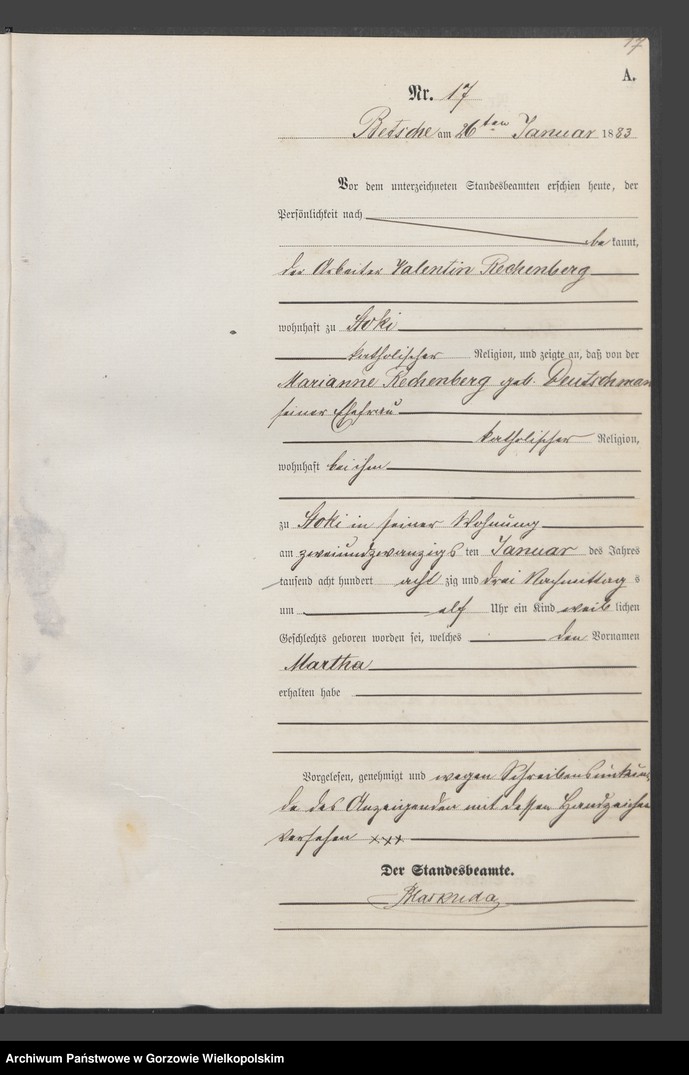 17
A.
Nr. 17
Betsche am 26ten Januar 1883
Vor dem unterzeichneten Standesbeamten erschien heute, der
Persönlichkeit nach
bekannt,
der Arbeiter Valentin Rechenberg
wohnhaft zu Stoki
katholischer Religion, und zeigte an, daß von der
Marianne Rechenberg geb. Deutschman
seiner Ehefrau
katholischer Religion,
wohnhaft bei ihm
zu Stoki in seiner Wohnung
am zweiundzwanzigsten Januar des Jahres
tausend acht hundert achtzig und drei Nachmittags
um elf Uhr ein Kind weiblichen
Geschlechts geboren worden sei, welches den Vornamen
Martha
erhalten habe
Vorgelesen, genehmigt und wegen Schreibensunkun
de des Anzeigenden mit dessen Handzeichen
versehen xxx
Der Standesbeamte.
Archiwum Państwowe w Gorzowie Wielkopolskim